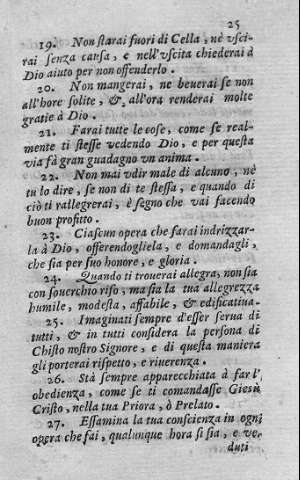 25
19. Non starai fuori di Cella, nè vsci-
rai senza causa, e nell'vscita chiederai à
Dio aiuto per non offenderlo.
20. Non mangerai, ne beuerai se non
all'hore solite, &, all'ora renderai molte
gratie à Dio.
21. Farai tutte le cose, come se real-
mente ti stesse vedendo Dio, e per questa
via fà gran guadagno vn anima.
22. Non mai vdir male di alcuno, nè
tu lo dire, se non di te stessa, e quando di
ciò ti rallegrerai, è segno che vai facendo
buon profitto.
23. Ciascun opera che farai indrizzar-
la à Dio, offerendogliela, e domandagli,
che sia per suo honore, e gloria.
24. Quando ti trouerai allegra, non sia
con souerchio riso, ma sia la tua allegrezza
humile, modesta, affabile, & edificatiua.
25. Imaginati sempre d'esser serua di
tutti, & in tutti considera la persona di
Chisto nostro Signore, e di questa maniera
gli porterai rispetto, e riuerenza.
26. Stà sempre apparecchiata à far l'
obedienza, come se ti comandasse Giesù
Cristo, nella tua Priora, ò Prelato.
27. Essamina la tua conscienza in ogni
opera che fai, qualunque hora si sia, e ve-
duti